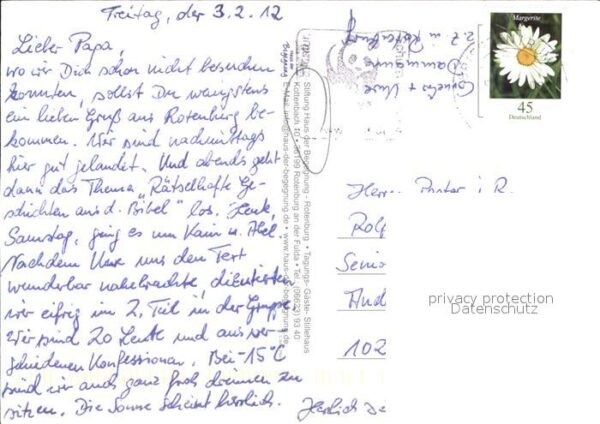 Freitag, der 3.2.12
Lieber Papa,
wo wir Dich schon nicht besuchen
konnten, sollst Du wenigstens
ein lieben Gruß aus Rotenburg be-
kommen. Wir sind nachmittags
hier gut gelandet. Und abends geht
dann das Thema „Rätselhafte Ge-
schichten aus d. Bibel" los. Heute,
Samstag, ging es um Kain u. Abel.
Nachdem Uwe uns den Text
wunderbar nahebrachte, diskutierten
wir eifrig im 2. Teil in der Gruppe.
Wir sind 20 Leute und aus ver-
schiedenen Konfessionen. Bei -15°C
sind wir auch ganz froh drinnen zu
sitzen. Die Sonne scheint herrlich.
Herzlich De
Haus der Begegnung
Stiftung Haus der Begegnung - Rotenburg • Tagungs- Gäste- Stillehaus
Kottenbach 10 • 36199 Rotenburg an der Fulda • Tel. (06623) 93 40
E-Mail: info@haus-der-begegnung.de • www.haus-der-begegnung.de
+ Uwe
z. Z. in Rotenburg
Margerite
45
Deutschland
Herrn Pastor i. R.
Rolf
Senio
And
102
privacy protection
Datenschutz